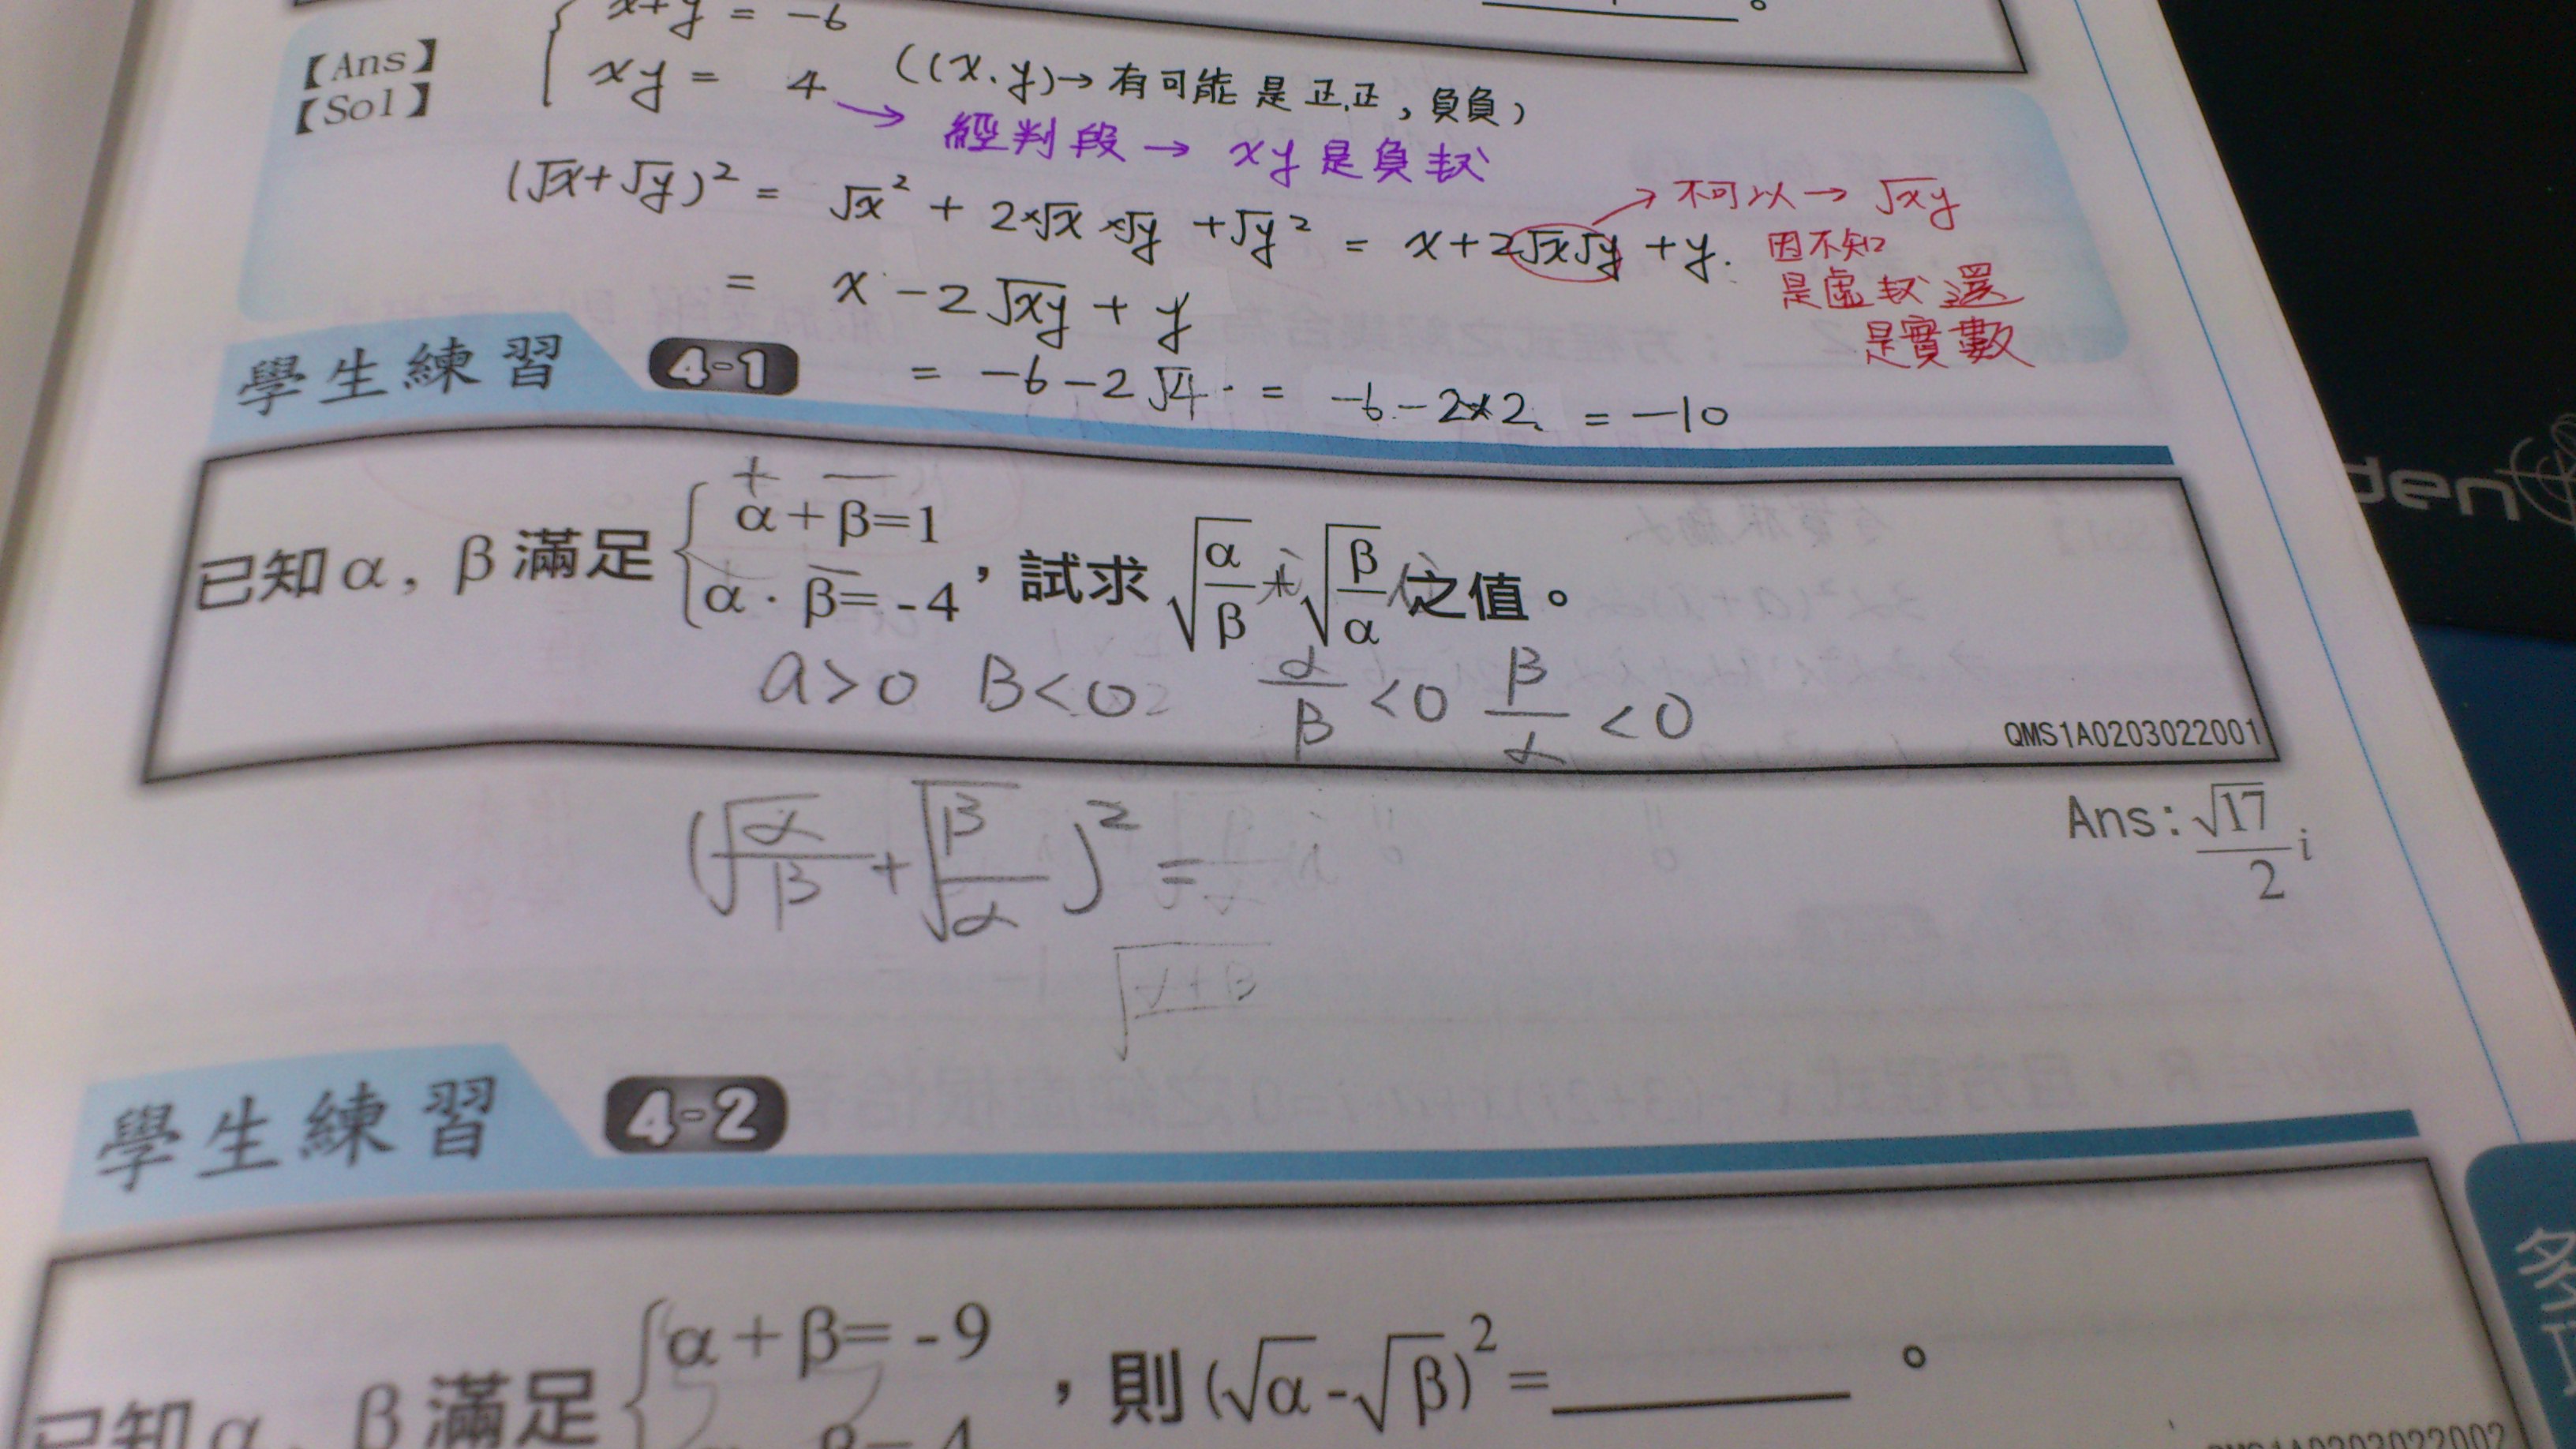 x+y = -6
【Ans】
【Sol】
xy = 4 ((x.y)→有可能是正.正，負負)
經判段 → xy是負数
(√x+√y)² = √x² + 2×√x×√y +√y² = x+2√x√y +y.
不可以→ √xy
因不知
是虛数還
是實數
= x -2√xy + y
= -6-2√4 = -6-2×2 = -10
學生練習 4-1
+ −
已知α，β滿足{α+β=1, α·β=-4，試求√(α/β)+√(β/α)之值。
a>0 B<0 α/β <0 β/α <0
QMS1A0203022001
Ans: √17/2 i
(√α/β + √(β/α))² =
√(α+β)
學生練習 4-2
已知α，β滿足{α+β=-9，則(√α-√β)²=______。
den